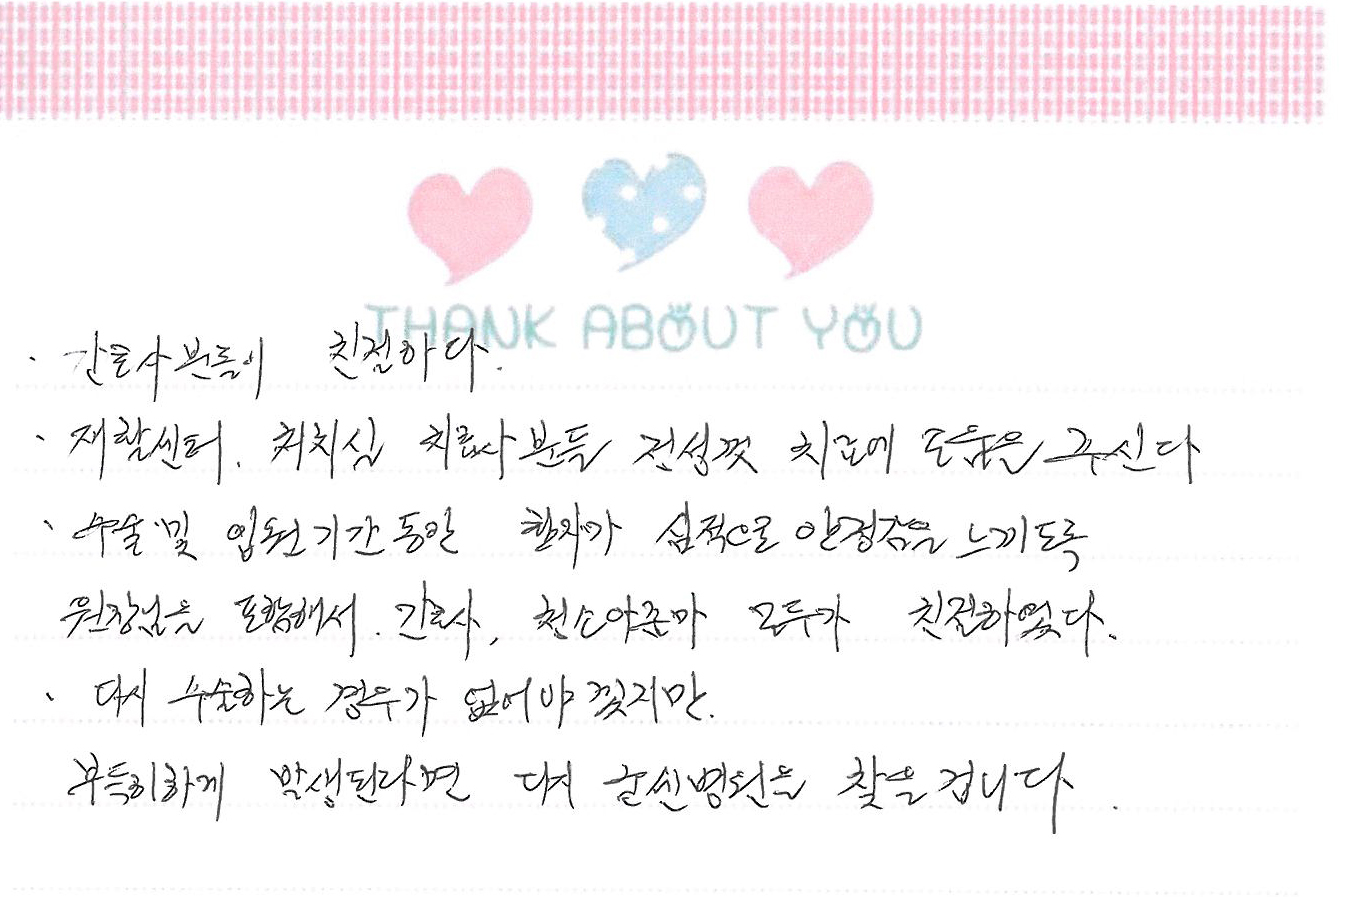 THANK ABOUT YOU
· 간호사분들이 친절하다.
· 재활센터, 처치실 치료사분들 정성껏 치료에 도움을 주신다
· 수술 및 입원기간동안 환자가 심적으로 안정감을 느끼도록
원장님을 포함해서 간호사, 청소아줌마 모두가 친절하였다.
· 다시 수술하는 경우가 없어야 겠지만.
부득이하게 발생된다면 다시 병원을 찾을겁니다.